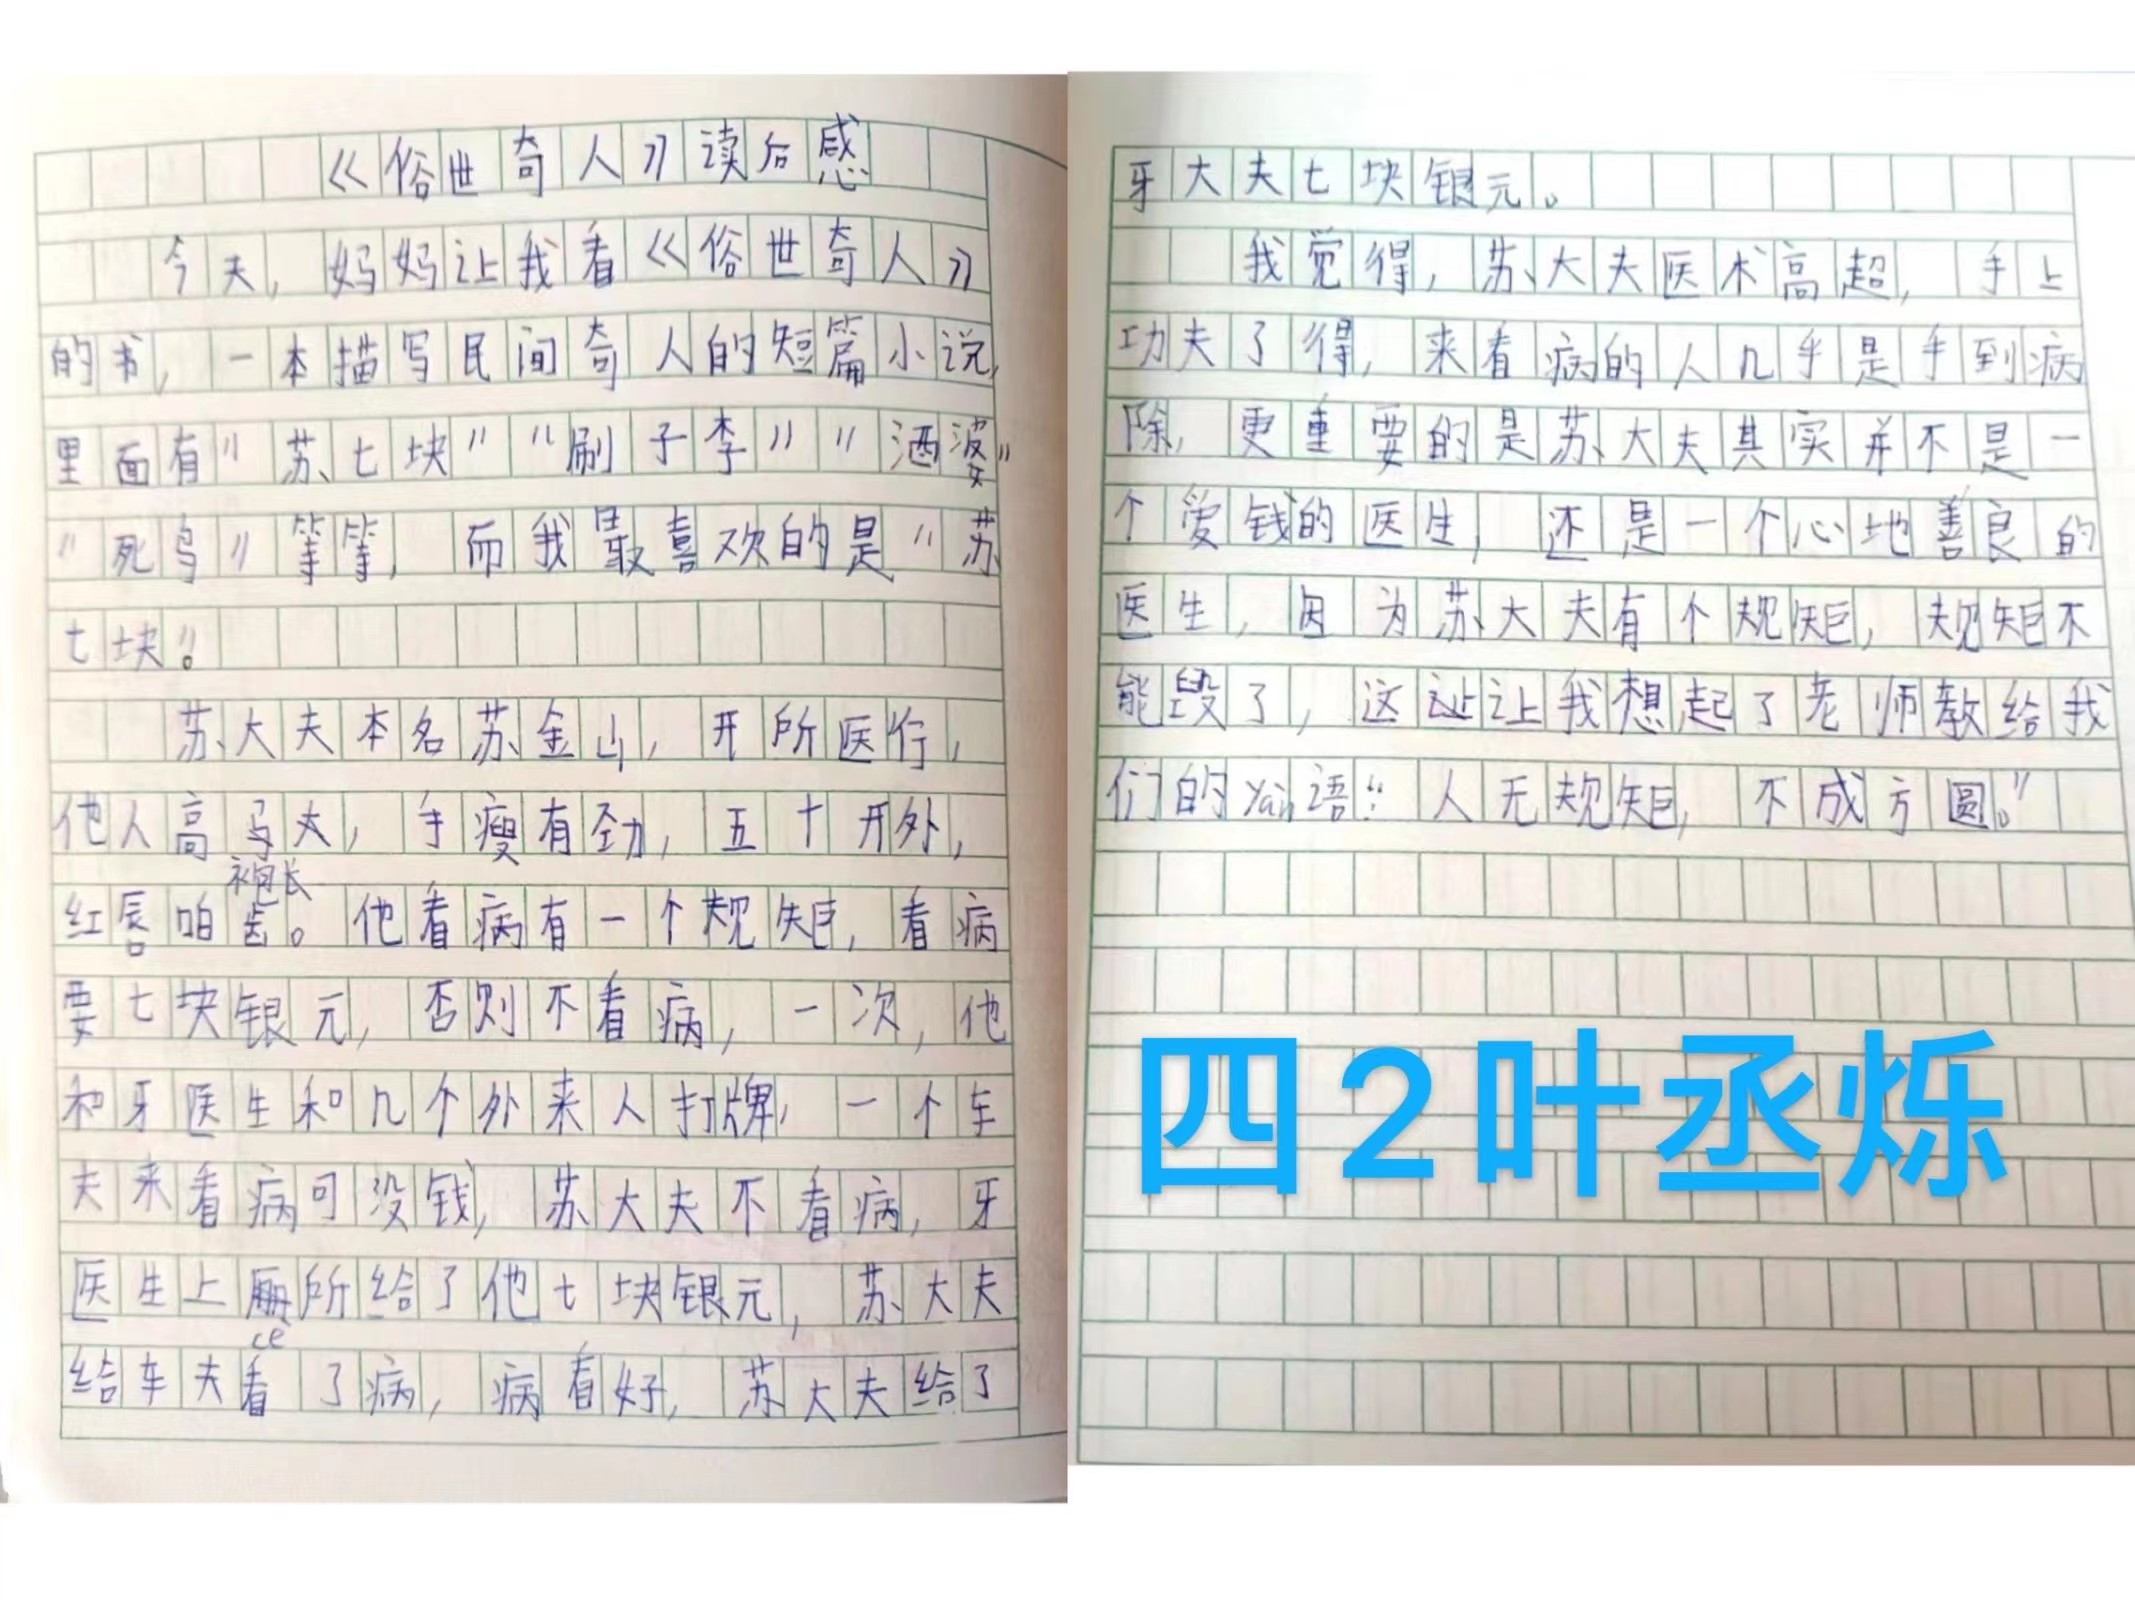 《俗世奇人》读后感
今天，妈妈让我看《俗世奇人》
的书，一本描写民间奇人的短篇小说，
里面有"苏七块""刷子李""酒婆"
"死鸟"等等，而我最喜欢的是"苏
七块"。
苏大夫本名苏金山，开所医行，
他人高马大，手瘦有劲，五十开外，
红唇皓齿。他看病有一个规矩，看病
要七块银元，否则不看病，一次，他
和牙医生和几个外来人打牌，一个车
夫来看病可没钱，苏大夫不看病，牙
医生上厕所给了他七块银元，苏大夫
cè
给车夫看了病，病看好，苏大夫给了
牙大夫七块银元。
我觉得，苏大夫医术高超，手上
功夫了得，来看病的人几乎是手到病
除，更重要的是苏大夫其实并不是一
个爱钱的医生，还是一个心地善良的
医生，因为苏大夫有个规矩，规矩不
能毁了，这让让我想起了老师教给我
们的yàn语："人无规矩，不成方圆。"
四2叶丞烁